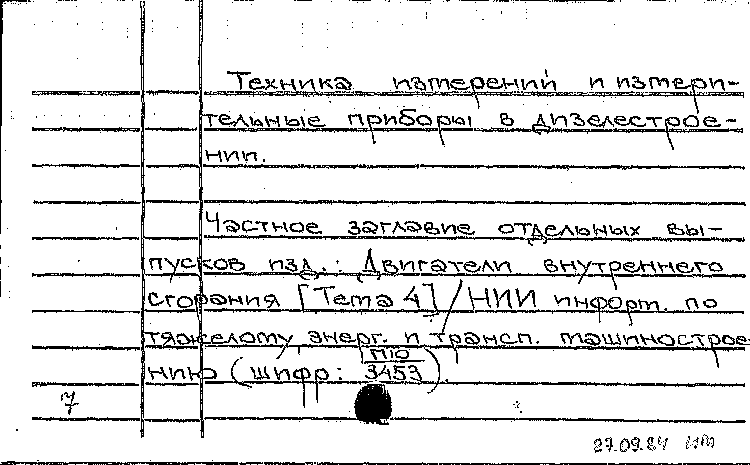 Техника измерений и измери-
тельные приборы в дизелестрое-
нии.
Частное заглавие отдельных вы-
пусков изд.: Двигатели внутреннего
сгорания [Тема 4]/НИИ информ. по
тяжелому энерг. и трансп. машинострое
нию (шифр: П10/3453).
7
27.09.84